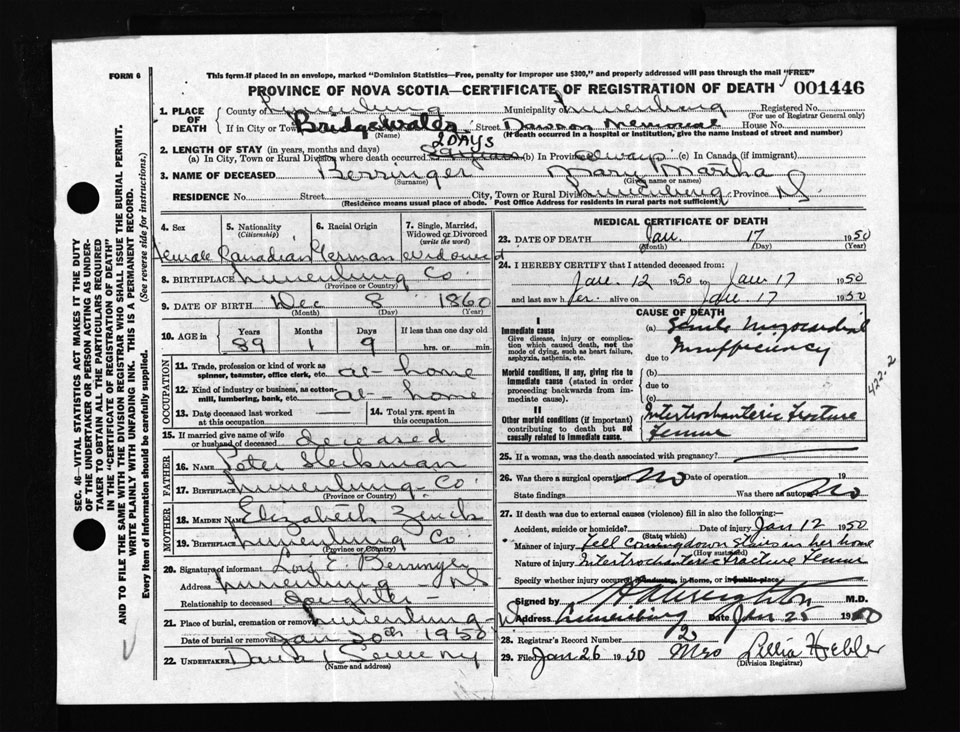 FORM 6
This form if placed in an envelope, marked "Dominion Statistics—Free, penalty for improper use $300," and properly addressed will pass through the mail "FREE"
PROVINCE OF NOVA SCOTIA—CERTIFICATE OF REGISTRATION OF DEATH 001446
1. PLACE OF DEATH County of Lunenburg Municipality of Lunenburg Registered No.
(For use of Registrar General only)
If in City or Town Bridgewater Street Dawson Memorial House No.
(Name) (If death occurred in a hospital or institution, give the name instead of street and number)
2 DAYS
2. LENGTH OF STAY (in years, months and days)
(a) In City, Town or Rural Division where death occurred (b) In Province always (c) In Canada (if immigrant)
3. NAME OF DECEASED Berringer Mary Martha
(Surname) (Given name or names)
RESIDENCE No. Street City, Town or Rural Division Lunenburg Province NS
(Residence means usual place of abode. Post Office Address for residents in rural parts not sufficient)
4. Sex 5. Nationality (Citizenship) 6. Racial Origin 7. Single, Married, Widowed or Divorced (write the word)
Female Canadian German widowed
8. BIRTHPLACE Lunenburg Co
(Province or Country)
9. DATE OF BIRTH Dec 8 1860
(Month) (Day) (Year)
10. AGE in Years Months Days If less than one day old
89 1 9 hrs. or min.
OCCUPATION
11. Trade, profession or kind of work as spinner, teamster, office clerk, etc. at-home
12. Kind of industry or business, as cotton-mill, lumbering, bank, etc. at-home
13. Date deceased last worked at this occupation 14. Total yrs. spent in this occupation
15. If married give name of wife or husband of deceased deceased
FATHER
16. NAME Peter
17. BIRTHPLACE Lunenburg Co
(Province or Country)
MOTHER
18. MAIDEN NAME Elizabeth Zinck
19. BIRTHPLACE Lunenburg Co
(Province or Country)
20. Signature of informant Lois E. Berringer
Address Lunenburg NS
Relationship to deceased daughter
21. Place of burial, cremation or removal Lunenburg
Date of burial or removal Jan 20th 1950
22. UNDERTAKER
(Name and address)
MEDICAL CERTIFICATE OF DEATH
23. DATE OF DEATH Jan. 17 1950
(Month) (Day) (Year)
24. I HEREBY CERTIFY that I attended deceased from:
Jan 12 1950 to Jan 17 1950
and last saw her alive on Jan 17 1950
CAUSE OF DEATH
I
Immediate cause
Give disease, injury or complication which caused death, not the mode of dying, such as heart failure, asphyxia, asthenia, etc.
(a) Senile Myocardial
due to Insufficiency
Morbid conditions, if any, giving rise to immediate cause (stated in order proceeding backwards from immediate cause).
(b)
due to
(c)
II
Other morbid conditions (if important) contributing to death but not causally related to immediate cause.
Intertrochanteric fracture
Femur
422.2
25. If a woman, was the death associated with pregnancy?
26. Was there a surgical operation? No Date of operation 19
State findings Was there an autopsy? No
27. If death was due to external causes (violence) fill in also the following:
Accident, suicide or homicide? Date of injury Jan 12 1950
(State which)
Manner of injury Fell coming down stairs in her home
(How sustained)
Nature of injury Intertrochanteric fracture Femur
Specify whether injury occurred in industry, in home, or in public place
Signed by M.D.
Address Lunenburg Date Jan 25 1950
28. Registrar's Record Number 2
29. Filed Jan 26 1950 Mrs Lillia Hebbler
(Division Registrar)
SEC. 46—VITAL STATISTICS ACT MAKES IT THE DUTY
OF THE UNDERTAKER OR PERSON ACTING AS UNDERTAKER
TO OBTAIN ALL THE PARTICULARS REQUIRED
IN THE "CERTIFICATE OF REGISTRATION OF DEATH"
AND TO FILE THE SAME WITH THE DIVISION REGISTRAR WHO SHALL ISSUE THE BURIAL PERMIT.
WRITE PLAINLY WITH UNFADING INK. THIS IS A PERMANENT RECORD.
Every item of Information should be carefully supplied. (See reverse side for instructions.)